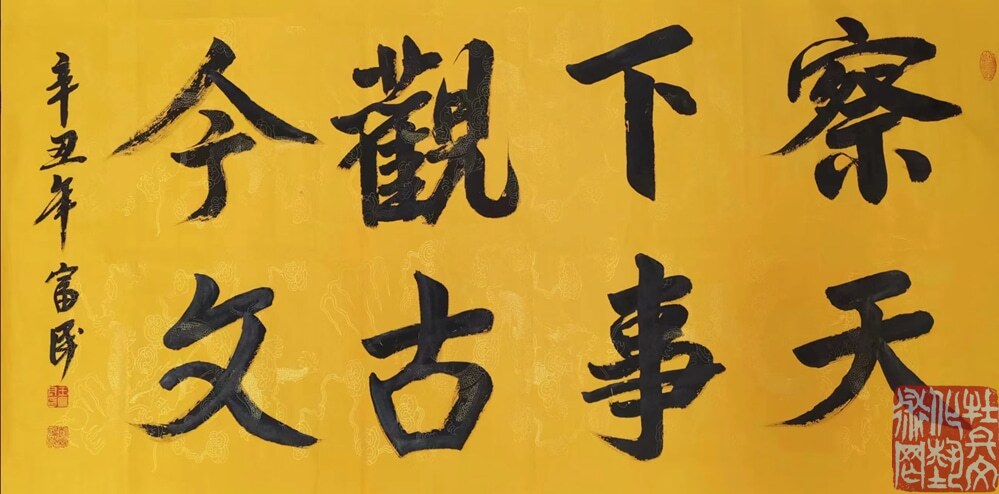 察天
下事
觀古
今文
辛丑年 富民